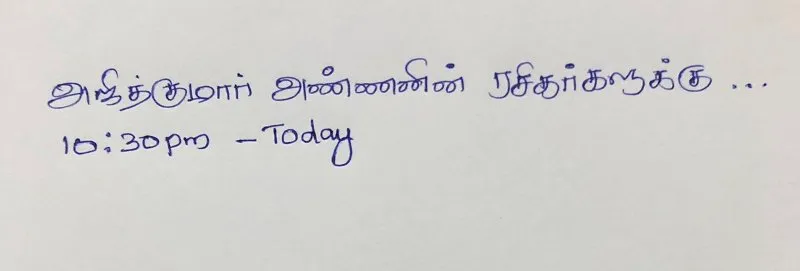 அஜித்குமார் அண்ணனின் ரசிதர்களுக்கு ...
10:30pm - Today